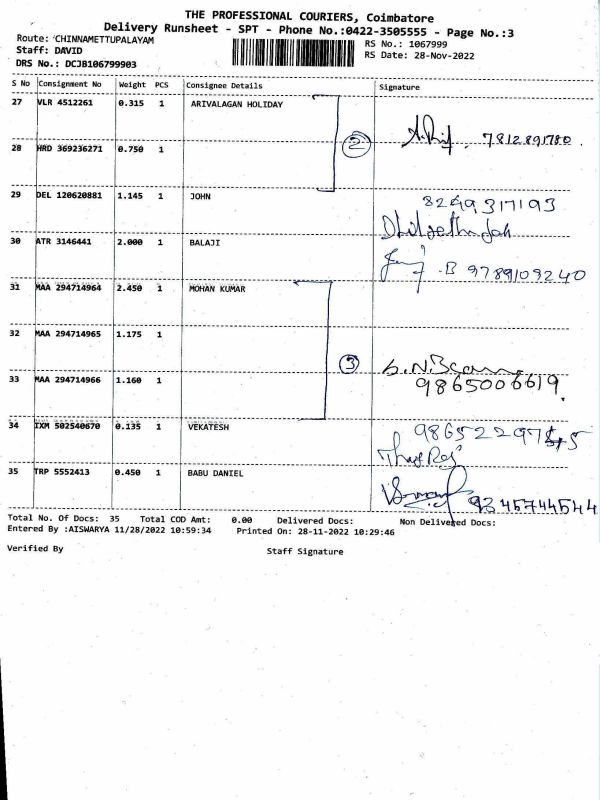 THE PROFESSIONAL COURIERS, Coimbatore
Delivery Runsheet - SPT - Phone No.:0422-3505555 - Page No.:3
Route: CHINNAMETTUPALAYAM
RS No.: 1067999
Staff: DAVID
RS Date: 28-Nov-2022
DRS No.: DCJB106799903
S No Consignment No Weight PCS Consignee Details Signature
27 VLR 4512261 0.315 1 ARIVALAGAN HOLIDAY
2 7812891780
28 HRD 369236271 0.750 1
29 DEL 120620881 1.145 1 JOHN
8249317193
30 ATR 3146441 2.000 1 BALAJI
B 9789109240
31 MAA 294714964 2.450 1 MOHAN KUMAR
32 MAA 294714965 1.175 1
3
33 MAA 294714966 1.160 1
9865006619
34 IXM 502540670 0.135 1 VEKATESH
35 TRP 5552413 0.450 1 BABU DANIEL
9345744544
Total No. Of Docs: 35 Total COD Amt: 0.00 Delivered Docs: Non Delivered Docs:
Entered By :AISWARYA 11/28/2022 10:59:34 Printed On: 28-11-2022 10:29:46
Verified By Staff Signature